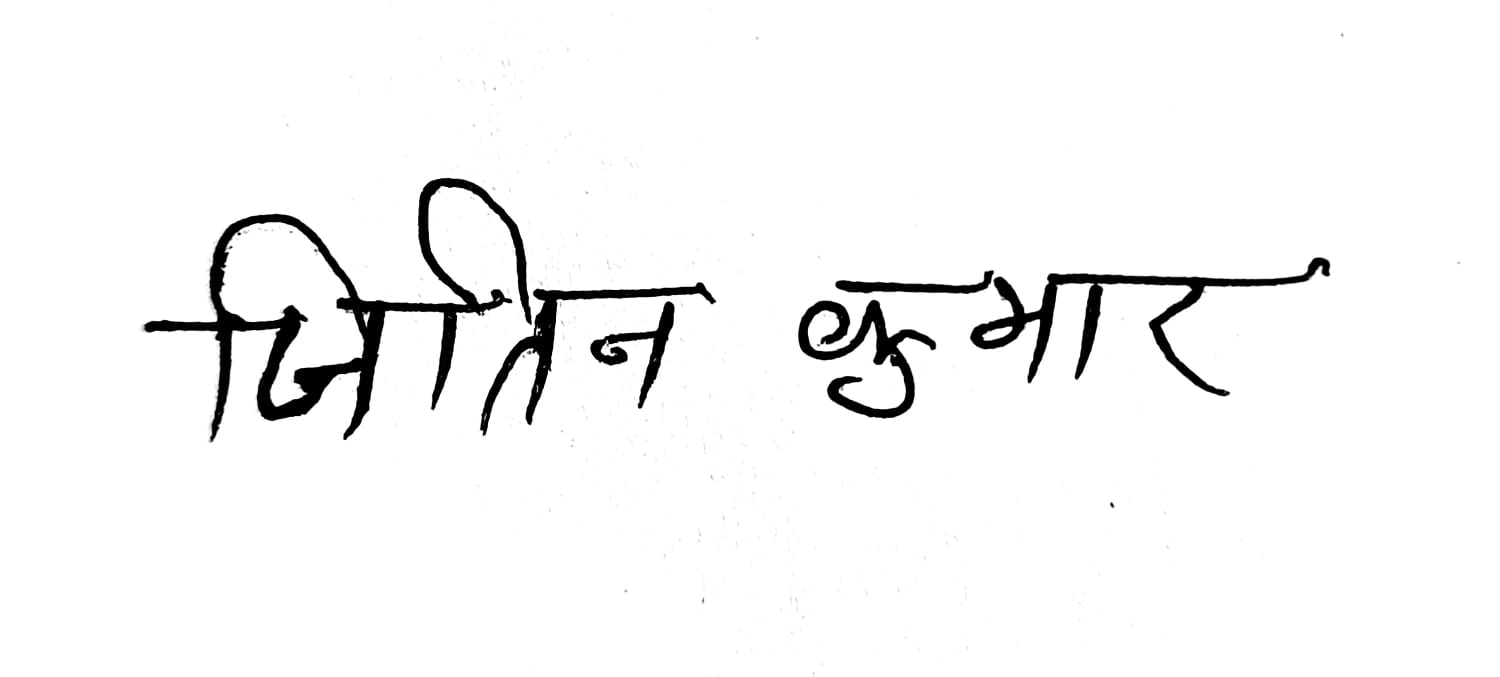 जितिन कुमार